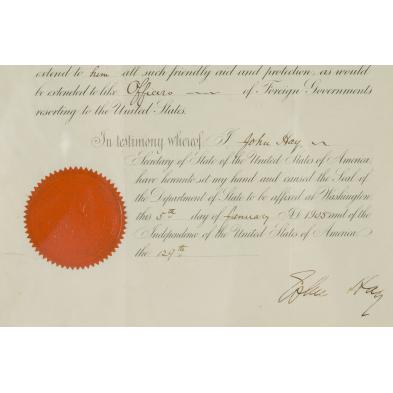 extend to him all such friendly aid and protection, as would
be extended to like Officers of Foreign Governments
resorting to the United States.
In testimony whereof I John Hay
Secretary of State of the United States of America
have hereunto set my hand and caused the Seal of
the Department of State to be affixed at Washington
this 5th day of January A.D. 1905 and of the
Independence of the United States of America
the 129th
John Hay